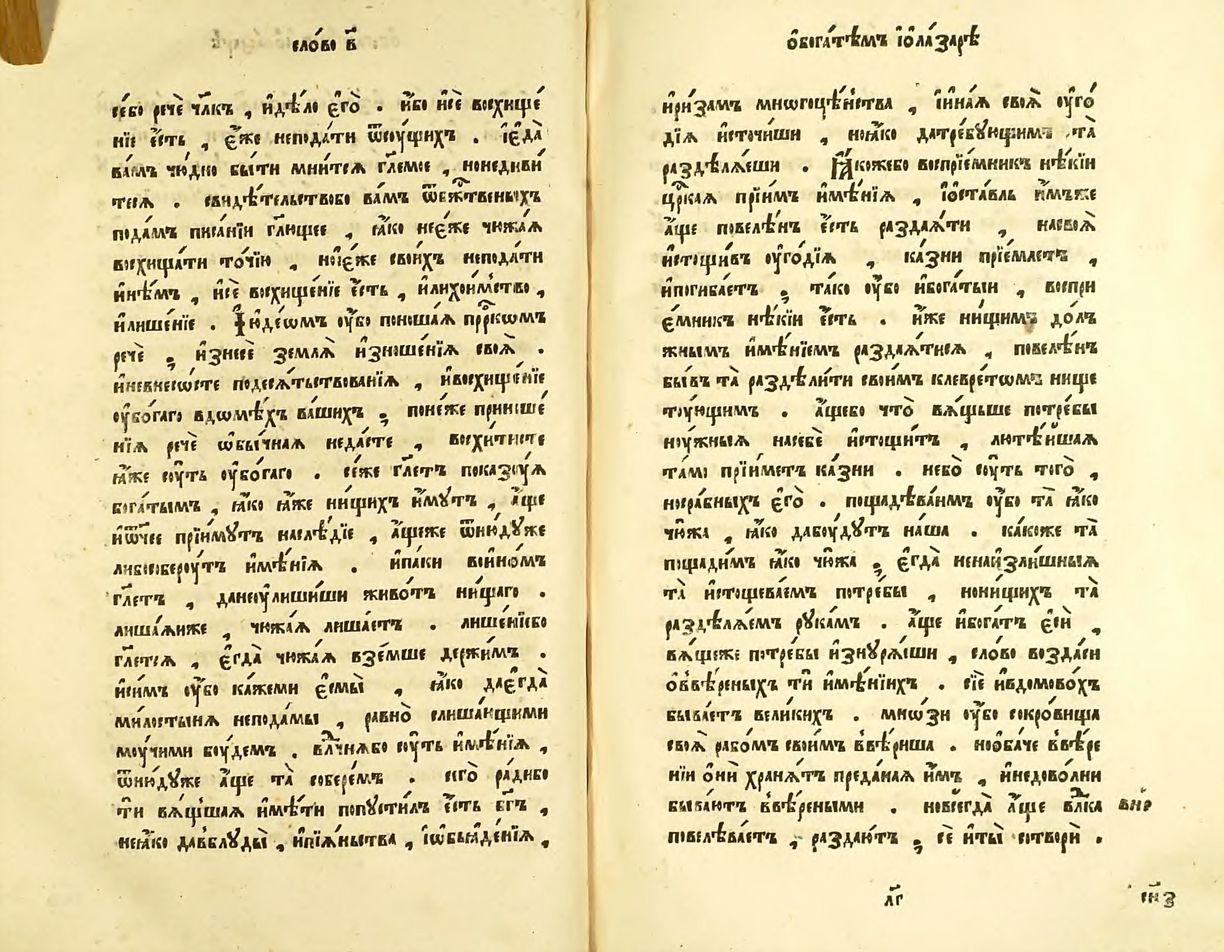 сло́во в҃
се́бо речѐ чл҃къ , и҆дѣ́ло є҆го̀ . и҆́бо и҆сѐ восхище́
нїе є҆́сть , є҆́же непода́ти ѿсоу́щихъ . і҆єда̀
ва́мъ чю́дно бы́ти мни́тсѧ гл҃емое , нонедиви́
тесѧ . свидѣ́тельствобо ва́мъ ѿбж҃твеныхъ
пода́мъ писа́нїи гл҃ющее , ꙗ҆́ко нее҆́же чюжа́ѧ
восхища́ти то́чїю , но́ие҆́же свои́хъ непода́ти
и҆нѣ́мъ , и҆сѐ восхище́нїе є҆́сть , и҆лихои́мство ,
и҆лише́нїе . І҆юде́ѡмъ оу҆́бо поноша́ѧ прⷪ҇ркомъ
речѐ , и҆знесѐ землѧ̀ и҆зноше́нїѧ своѧ̀ .
и҆невнесо́сте подесѧ́тьствованїѧ , и҆восхище́нїе
оу҆бо́гаго вдомѣ́хъ ва́шихъ , поне́же приноше́
нїѧ речѐ ѡ҆бы́чнаѧ неда́сте , восхи́тисте
ꙗ҆́же соу́ть оу҆бо́гаго . се́же гл҃етъ показоу́ѧ
бога́тымъ , ꙗ҆́ко ꙗ҆́же ни́щихъ и҆́мꙋтъ , а҆́ще
и҆ѻ҆́тчее прїи́мꙋтъ наслѣ́дїе , а҆́щеже ѿню́дꙋже
либособероу́тъ и҆мѣ́нїѧ . и҆па́ки во́иномъ
гл҃етъ , данеоу҆лиши́ши живо́тъ ни́щаго .
лиша́ѧиже , чюжа́ѧ лиша́етъ . лише́нїебо
гл҃етсѧ , є҆гда̀ чюжа́ѧ взе́мше держи́мъ .
и҆си́мъ оу҆́бо ка́жеми є҆смы̀ , ꙗ҆́ко дає҆гда̀
ми́лостынѧ непода́мы , ра́вно слиша́ющими
моу́чими боу́демъ . влⷣчнѧбо соу́ть и҆мѣ́нїѧ ,
ѿню́дꙋже а҆́ще та̀ собере́мъ . сего̀ ра́дибо
ти вѧ́щшаѧ и҆мѣ́ти попусти́лъ є҆́сть бг҃ъ ,
неꙗ҆́ко давблꙋды̀ , и҆пїѧ́ньства , і҆ѡбьѧде́нїѧ ,
ѻ҆бога́тѣмъ і҆ѻ҆ла́зарѣ
и҆ри́замъ мноѡгоцѣ́ньства , і҆и҆на́ѧ своѧ̀ оу҆го́
дїѧ и҆сточи́ши , ноꙗ҆́ко датре́бꙋющимъ та̀
раздѣлѧ́еши . Ꙗ҆́кожебо воспрїе́мникъ нѣ́кїи
цр҃каѧ прїи́мъ и҆мѣ́нїѧ , і҆ѡ҆ста́вль и҆́мъже
а҆́ще повелѣ́нъ є҆́сть раздаѧ́ти , насвоѧ̀
и҆стощи́въ оу҆го́дїѧ , ка́зни прїе́млетъ ,
и҆погиба́етъ , та́ко оу҆́бо и҆бога́тыи , воспри
є҆́мникъ нѣ́кїи є҆́сть . и҆́же ни́щимъ до́лъ
жнымъ и҆мѣ́нїемъ раздаѧ́тисѧ , повелѣ́нъ
бы́въ та̀ раздѣли́ти свои́мъ клевре́томъ нище
тꙋ́ющимъ . а҆́щебо что̀ вѧ́щьше потре́бы
ноу́жныѧ насебѐ и҆стощи́тъ , лютѣ́йшаѧ
та́мо прїи́метъ ка́зни . небо̀ соу́ть того̀ ,
носрабныхъ є҆го̀ . пощадѣва́имъ оу҆́бо та̀ ꙗ҆́ко
чю́жа , ꙗ҆́ко дабоу́дꙋтъ на́ша . ка́коже та̀
пощади́мъ ꙗ҆́ко чю́жа , є҆гда̀ ненаи҆зли́шныѧ
та̀ и҆стощева́емъ потре́бы , нони́щихъ та̀
раздѣлѧ́емъ рꙋка́мъ . а҆́ще и҆бога́тъ є҆сѝ ,
вѧ́щеже потре́бы и҆знꙋрѧ́еши , сло́во возда́си
ѻ҆ввѣ́реныхъ ти и҆мѣ́нїихъ . сїѐ и҆вдомово́хъ
быва́етъ вели́кихъ . мно́ѕи оу҆́бо сокро́вища
своѧ̀ рабо́мъ свои́мъ ввѣ́риша . нообаче ввѣ́ре
нїи ѻ҆нѝ хранѧ́тъ преда́наѧ и҆́мъ , и҆недово́лни
быва́ютъ ввѣ́реными . новсегда̀ а҆́ще влⷣка
повелѣва́етъ , раздаю́тъ , сѐ и҆ты̀ сотворѝ .
л҃г